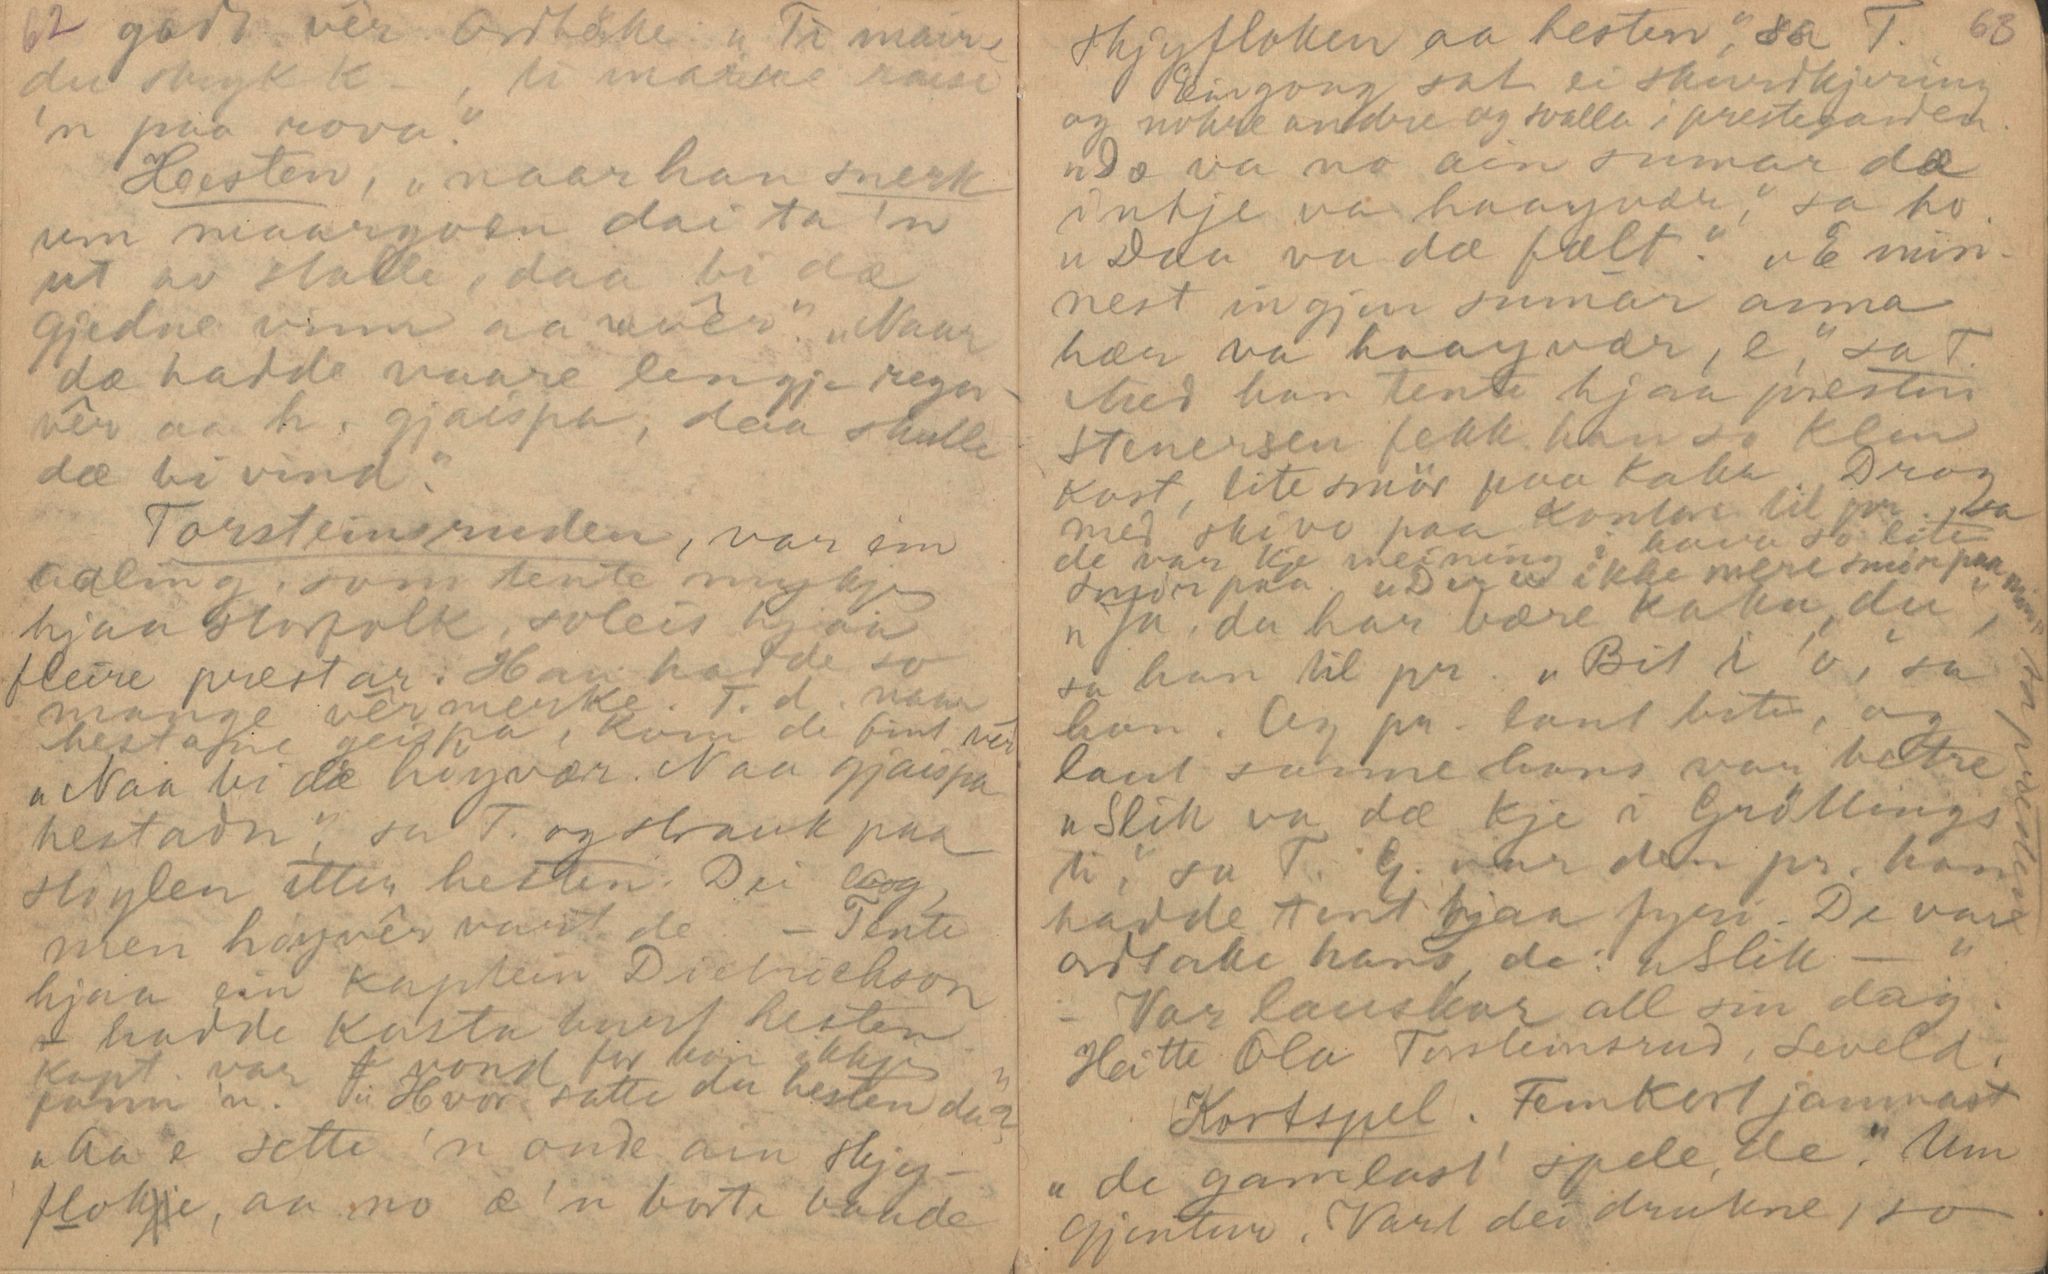 62 godt vêr. Ordtøke: „Ti mair
du stryk k –, ti maire raise
'n paa rova."
Hesten, „naar han snerk
um maargoen dai ta 'n
ut av stalle, daa bi dæ
gjedne vinn aa uvêr". „Naar
dæ hadde vaare lengje regn-
vêr aa h. gjaispa, daa skulle
dæ bi vind."
Torsteinsruden, var ein
adling, som tente mykje
hjaa storfolk, soleis hjaa
fleire prestar. Han hadde so
mange vêrmerke. T. d. naar
hestane geispa, kom de fint vêr
„Naa bi dæ høyvær. Naa gjaispa
hestadn", sa T. og strauk paa
støylen etter hesten. Dei log,
men høyvêr vart de. – Tente
hjaa ein kaptein Dietrichson
– hadde kasta burt hesten
kapt. var vond for han ikkje
fann 'n. „Hvor satte du hesten da"?
„Aa e sette 'n onde ain skjy-
flokje, aa no æ 'n borte baade
skjyfloken aa hesten", sa T. 63
Eingong sat ei skurdkjering
og nokre andre og svalla i prestegarden.
„Dæ va no ain sumar dæ
inkje va haayvær", sa ho.
„Daa va dæ fælt". „E min-
nest ingjen sumar anna
hær va haayvær, e", sa T.
Med han tente hjaa presten
Stenersen fekk han so klen
kost, lite smör paa kaka. Drog
med skiva paa kontore til pr., sa
de var kje meining i hava so lite
smör paa. „Der er ikke mere smör paa min", sa presten
„Ja, du har bære kaka, du",
sa han til pr. „Bit i 'o", sa
han. Og pr. laut bite, og
laut sanne hans var betre
„Slik va dæ kje i Gröllings
ti", sa T. G. var den pr. han
hadde tent hjaa fyrr. De vare
ordtake hans, de: „Slik – "
– Var lauskar all sin dag.
Heitte Ola Torsteinsrud, Seveld.
Kortspel. Femkort jamnast
„de gamlast' spele, de". Um
gjentur. Vart dei drukne, so